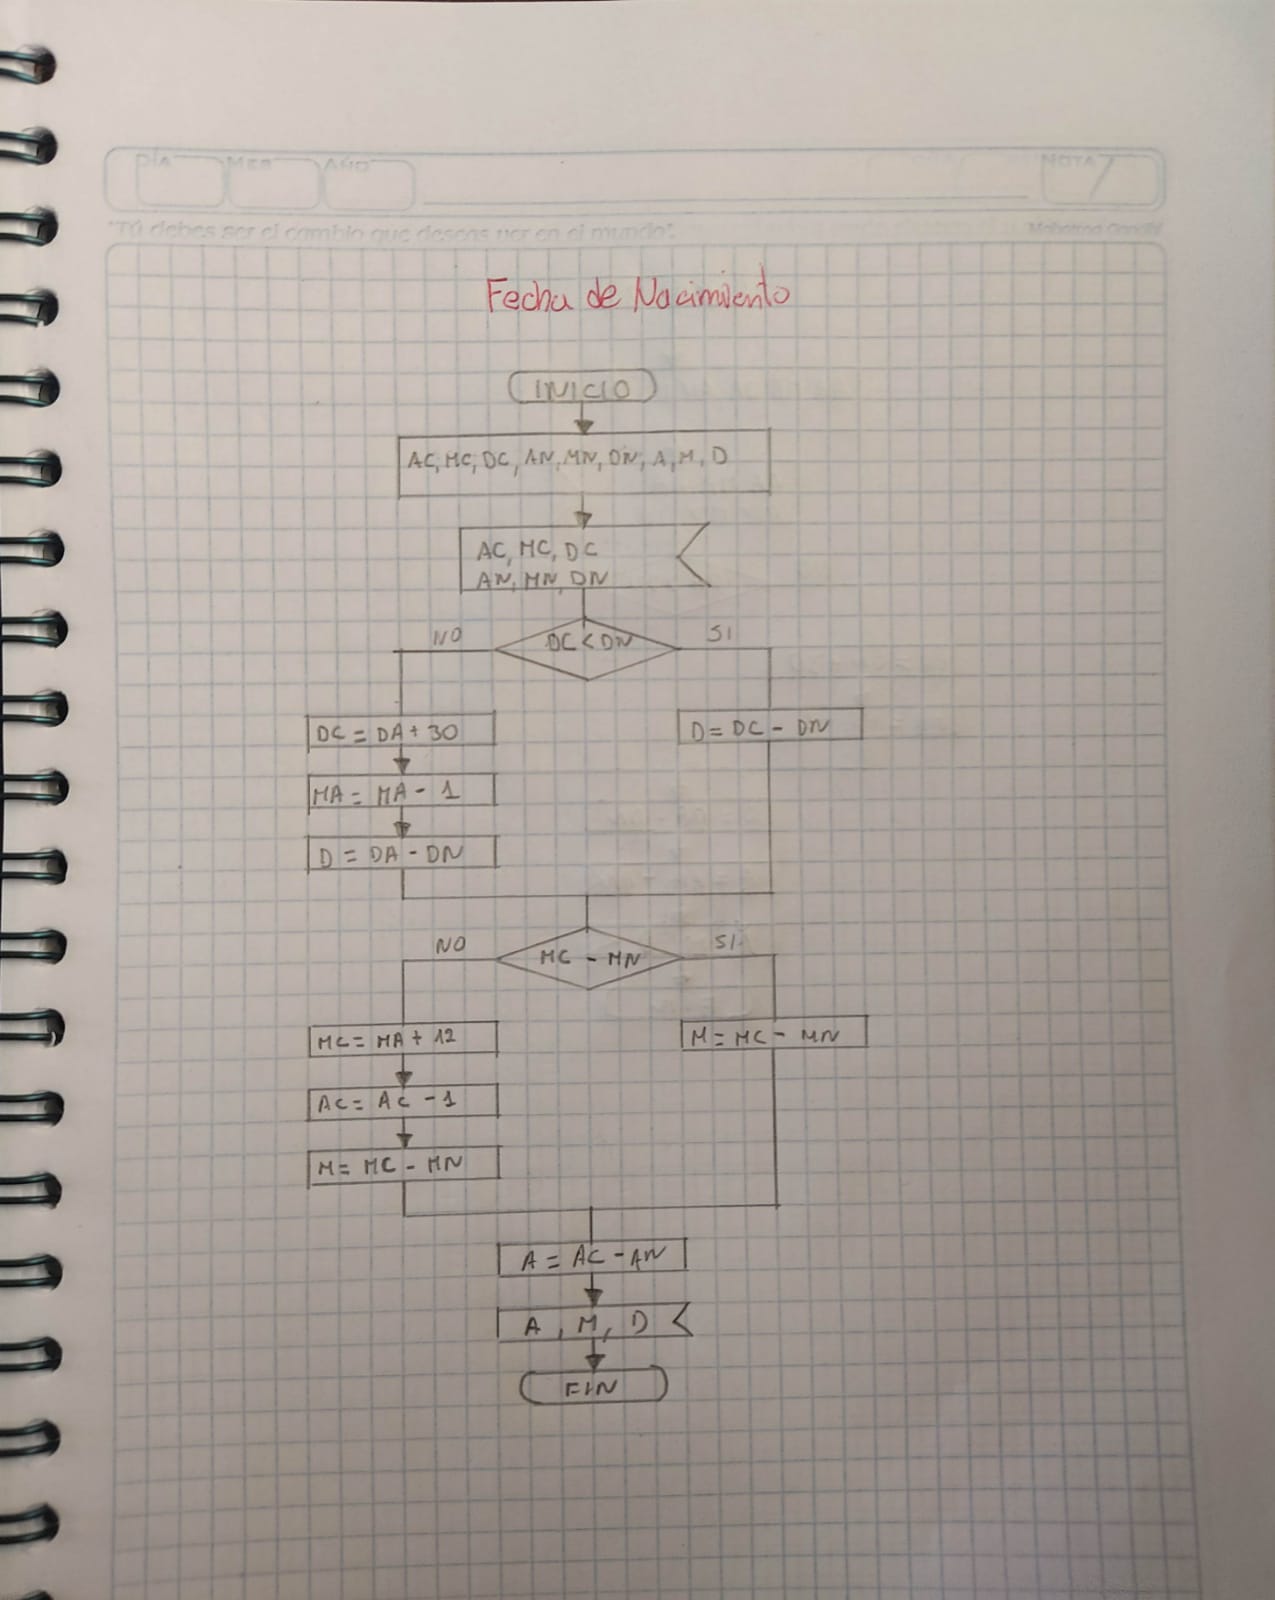 DÍA MES AÑO NOTA
"Tú debes ser el cambio que deseas ver en el mundo". Mahatma Gandhi
Fecha de Nacimiento
INICIO
AC, MC, DC, AN, MN, DN, A, M, D
AC, MC, DC
AN, MN, DN
NO DC < DN SI
DC = DA + 30 D = DC - DN
MA = MA - 1
D = DA - DN
NO MC - MN SI
MC = MA + 12 M = MC - MN
AC = AC - 1
M = MC - MN
A = AC - AN
A, M, D
FIN